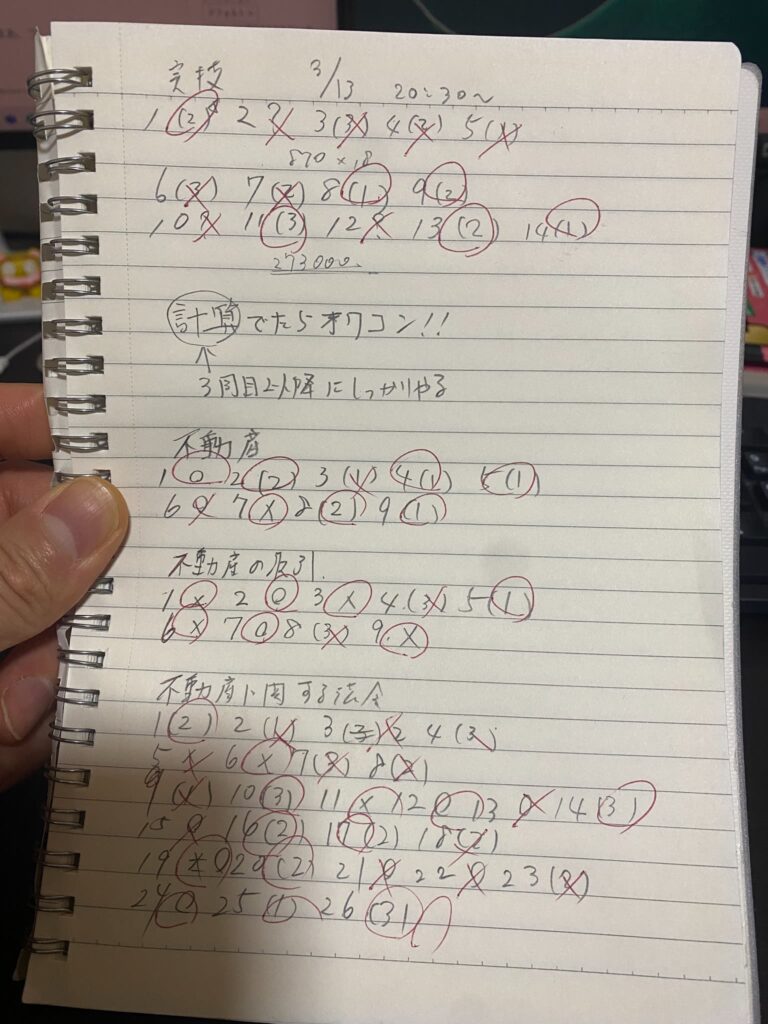 実技 3/13 20:30〜
1 (2) 2 ? 3 (3) 4 (2) 5 (1)
870×18
6 (3) 7 (2) 8 (1) 9 (2)
10 ? 11 (3) 12 ? 13 (2) 14 (1)
273000
計算でたらオワコン!!
↑
3周目以降にしっかりやる
不動産
1 ○ 2 (2) 3 (1) 4 (1) 5 (1)
6 ○ 7 × 8 (2) 9 (1)
不動産の取引
1 × 2 ○ 3 × 4 (3) 5 (1)
6 × 7 ○ 8 (3) 9 ×
不動産に関する法令
1 (2) 2 (1) 3 2 4 (3)
5 × 6 × 7 (2) 8 (2)
9 (1) 10 (3) 11 × 12 ○ 13 ○ 14 (3)
15 ○ 16 (2) 17 (2) 18 (2)
19 ○ 20 (2) 21 ○ 22 ○ 23 (2)
24 ○ 25 (1) 26 (3)